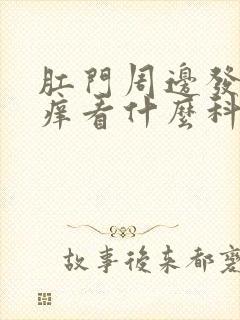 肛門周邊發
痒看什麼科
故事後来都